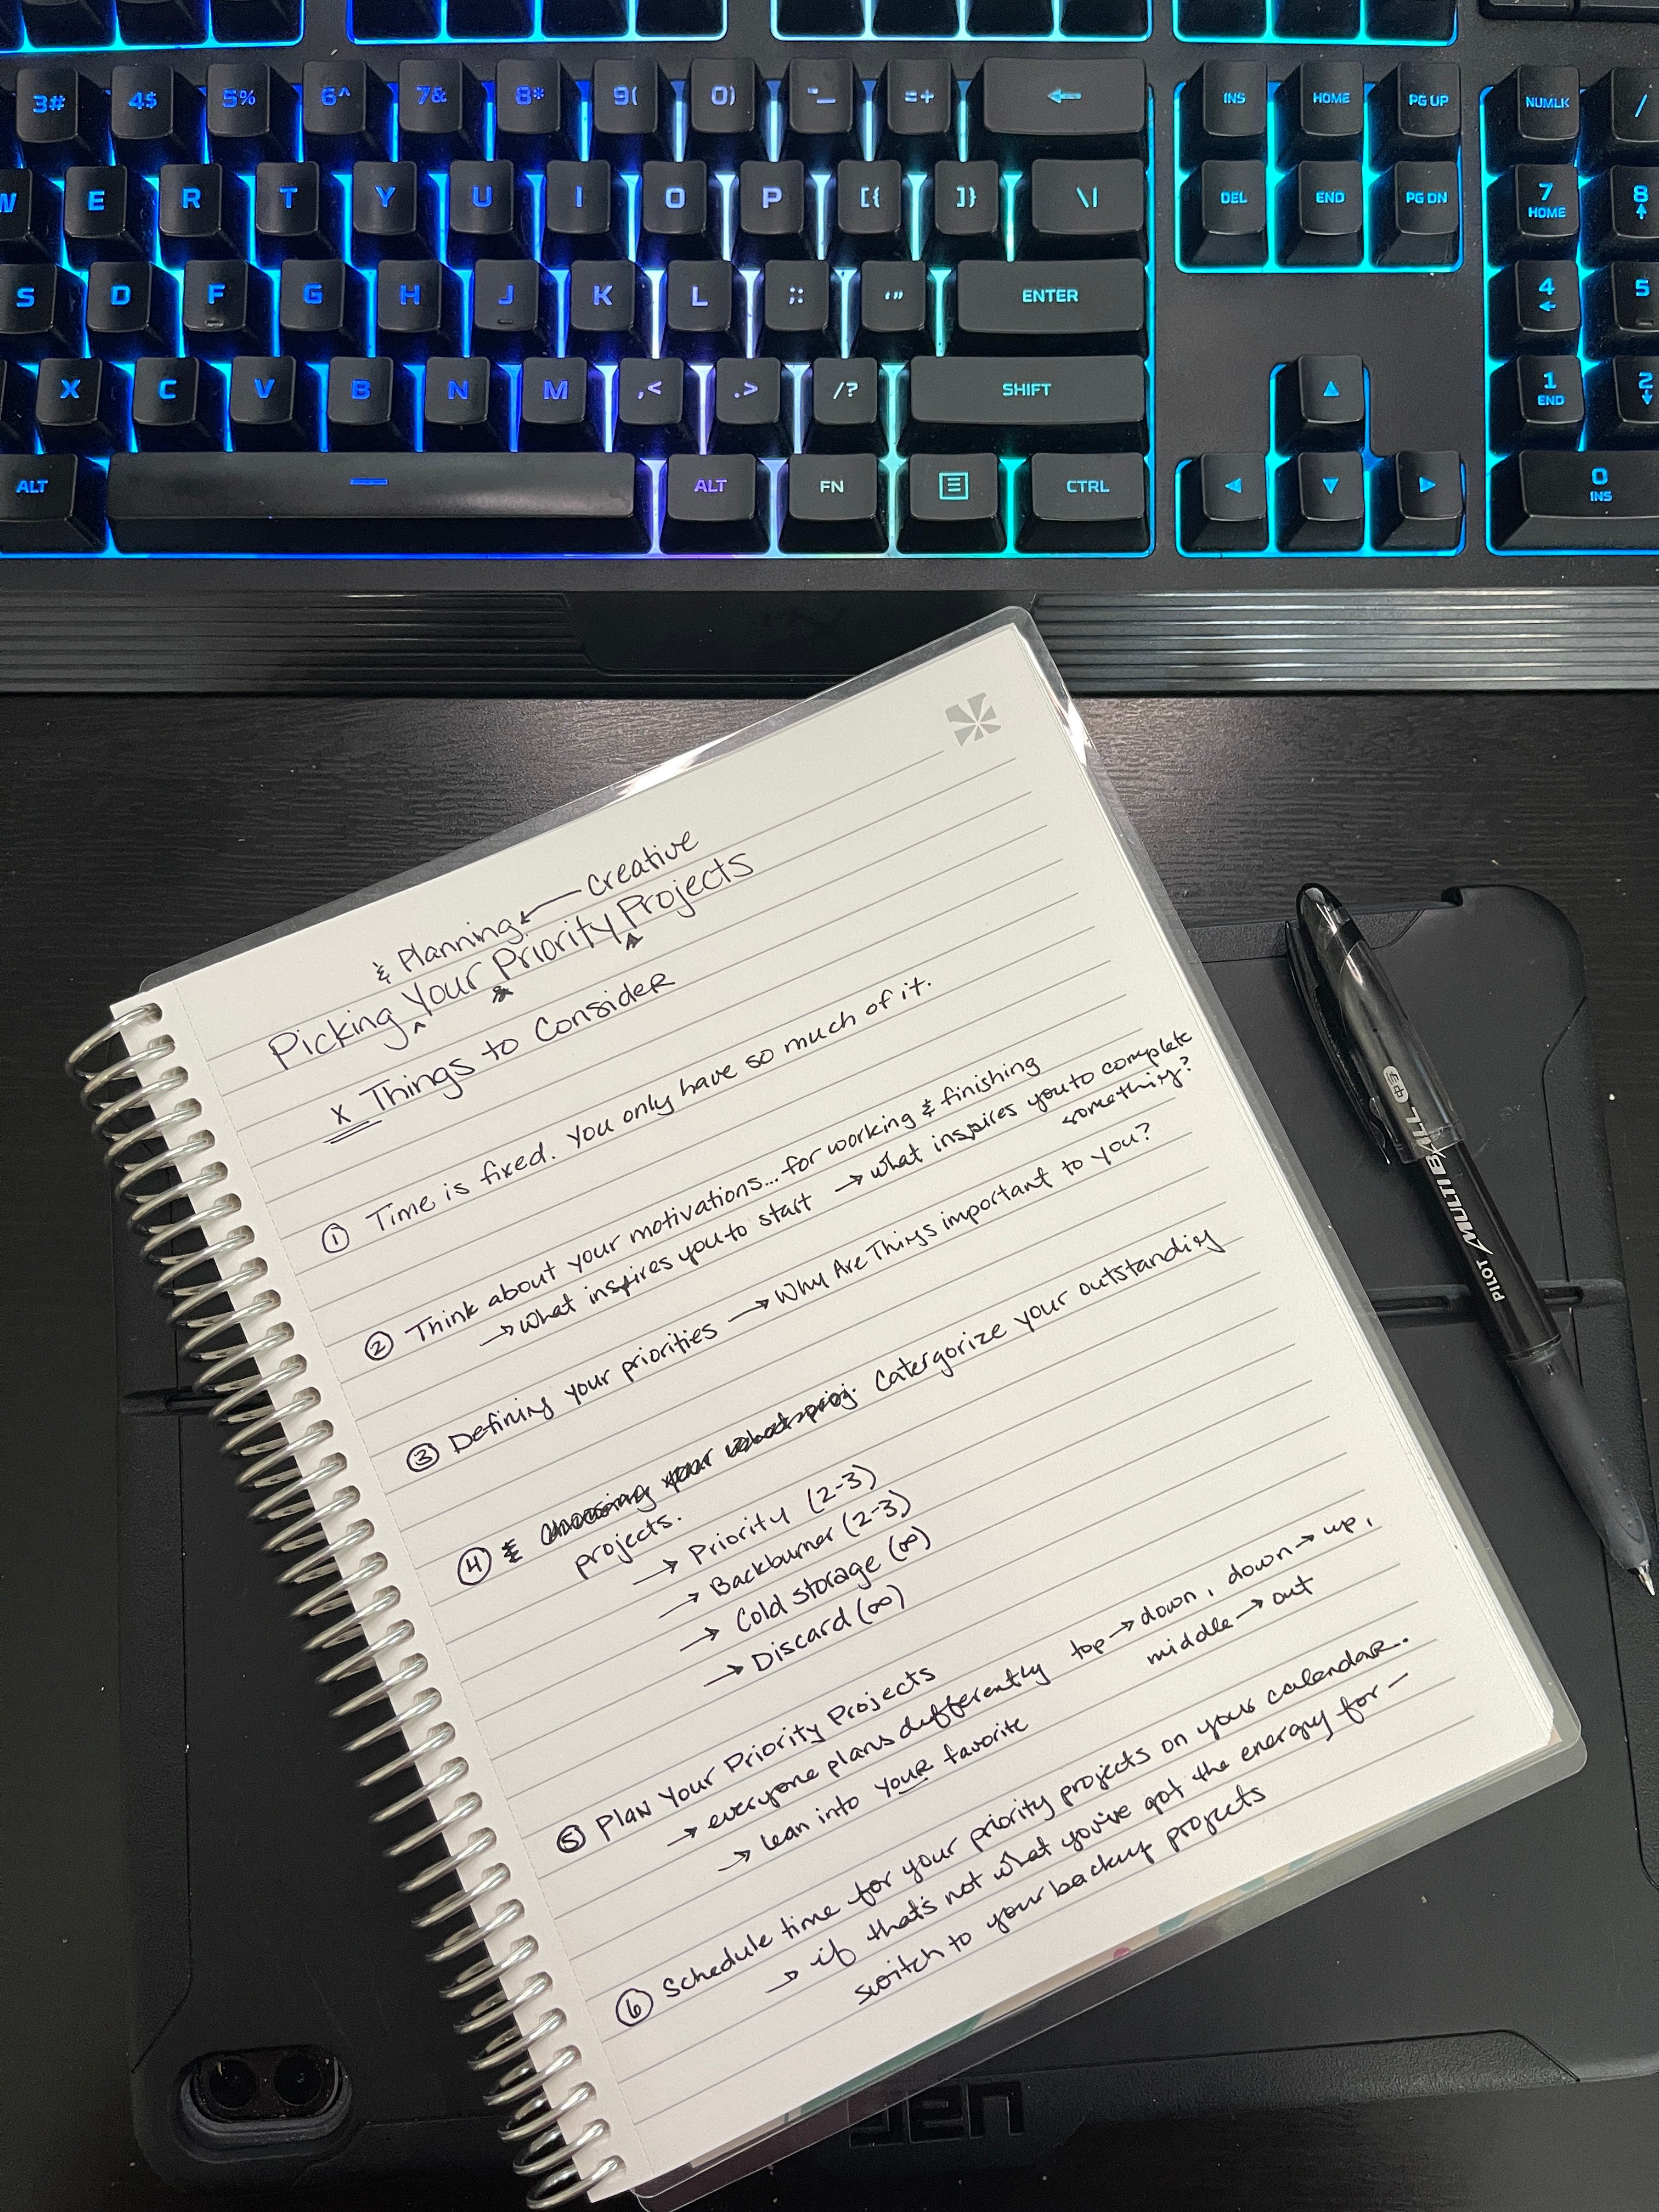 3# 4$ 5% 6^ 7& 8* 9( 0) -_ =+ ← INS HOME PG UP NUMLK /
W E R T Y U I O P [{ ]} \| DEL END PG DN 7 HOME 8
S D F G H J K L ;: '" ENTER 4 5
X C V B N M ,< .> /? SHIFT 1 END 2
ALT ALT FN CTRL 0 INS
& Planning ← Creative
Picking Your Priority Projects
x Things to Consider
① Time is fixed. You only have so much of it.
② Think about your motivations... for working & finishing
→ what inspires you to start → what inspires you to complete
something?
③ Defining your priorities → Why Are Things important to you?
④ Catergorize your outstanding
projects.
→ Priority (2-3)
→ Backburner (2-3)
→ Cold storage (∞)
→ Discard (∞)
⑤ Plan Your Priority Projects
→ everyone plans differently top → down, down → up,
middle → out
→ lean into YOUR favorite
⑥ Schedule time for your priority projects on your calendar.
→ if that's not what you've got the energy for –
switch to your backup projects
PILOT MULTI BALL